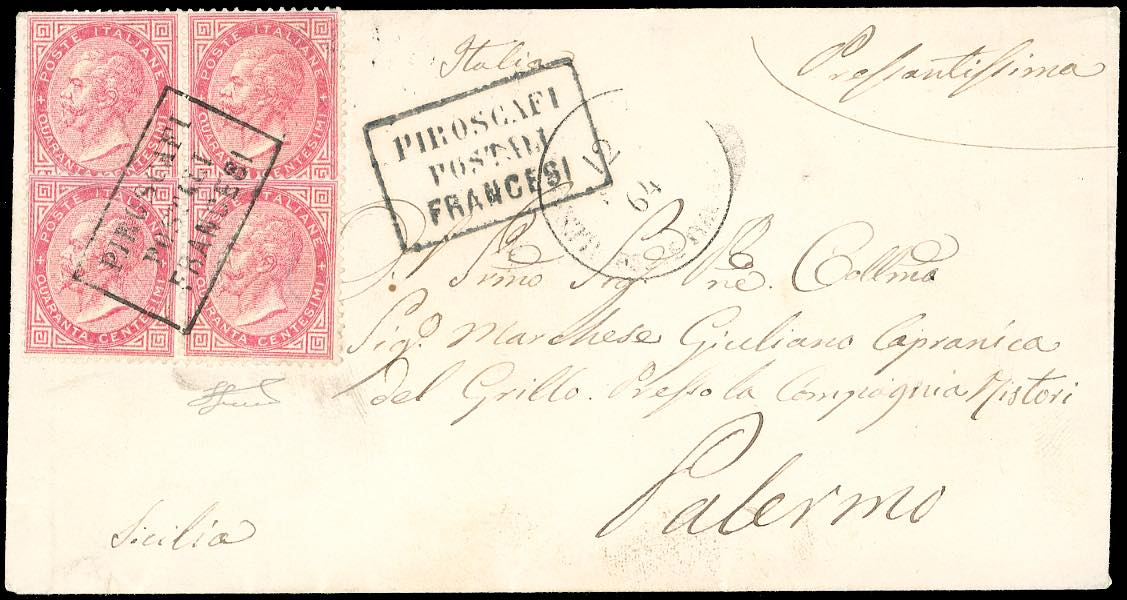 POSTE ITALIANE
QUARANTA CENTESIMI
POSTE ITALIANE
QUARANTA CENTESIMI
POSTE ITALIANE
QUARANTA CENTESIMI
POSTE ITALIANE
QUARANTA CENTESIMI
PIROSCAFI
POSTALI
FRANCESI
Italia
Pressantissima
PIROSCAFI
POSTALI
FRANCESI
12
64
Sigr. Marchese Giuliano Capranica
del Grillo. Presso la Compagnia Ristori
Palermo
Sicilia